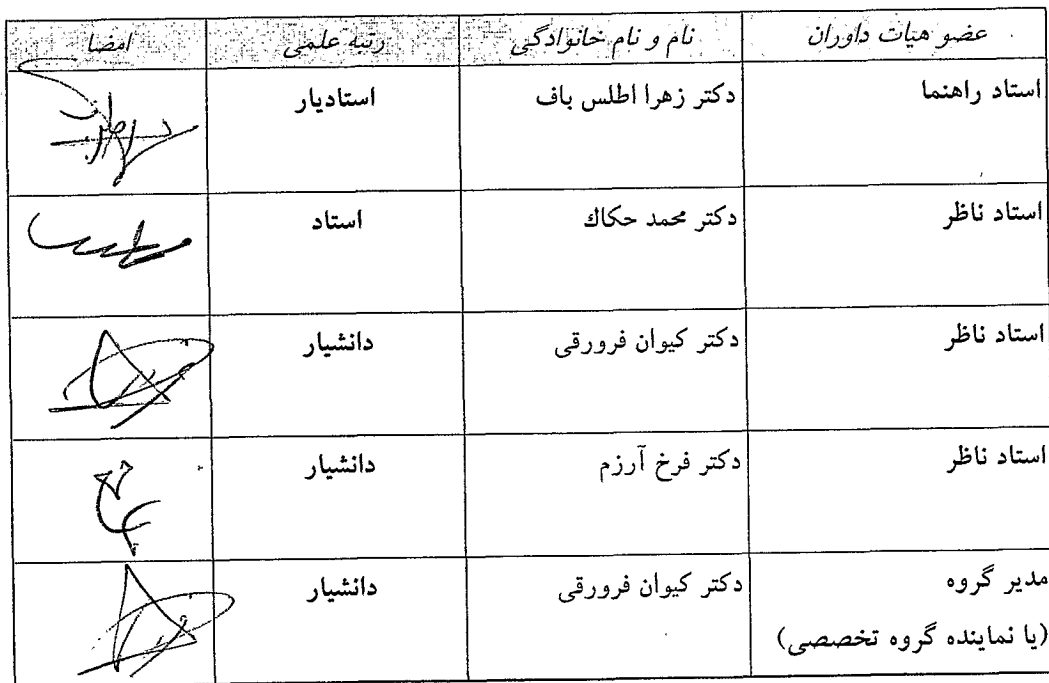 عضو هیات داوران نام و نام خانوادگی رتبه علمی امضا
استاد راهنما دکتر زهرا اطلس باف استادیار
استاد ناظر دکتر محمد حکاك استاد
استاد ناظر دکتر کیوان فرورقی دانشیار
استاد ناظر دکتر فرخ آرزم دانشیار
مدیر گروه دکتر کیوان فرورقی دانشیار
(یا نماینده گروه تخصصی)